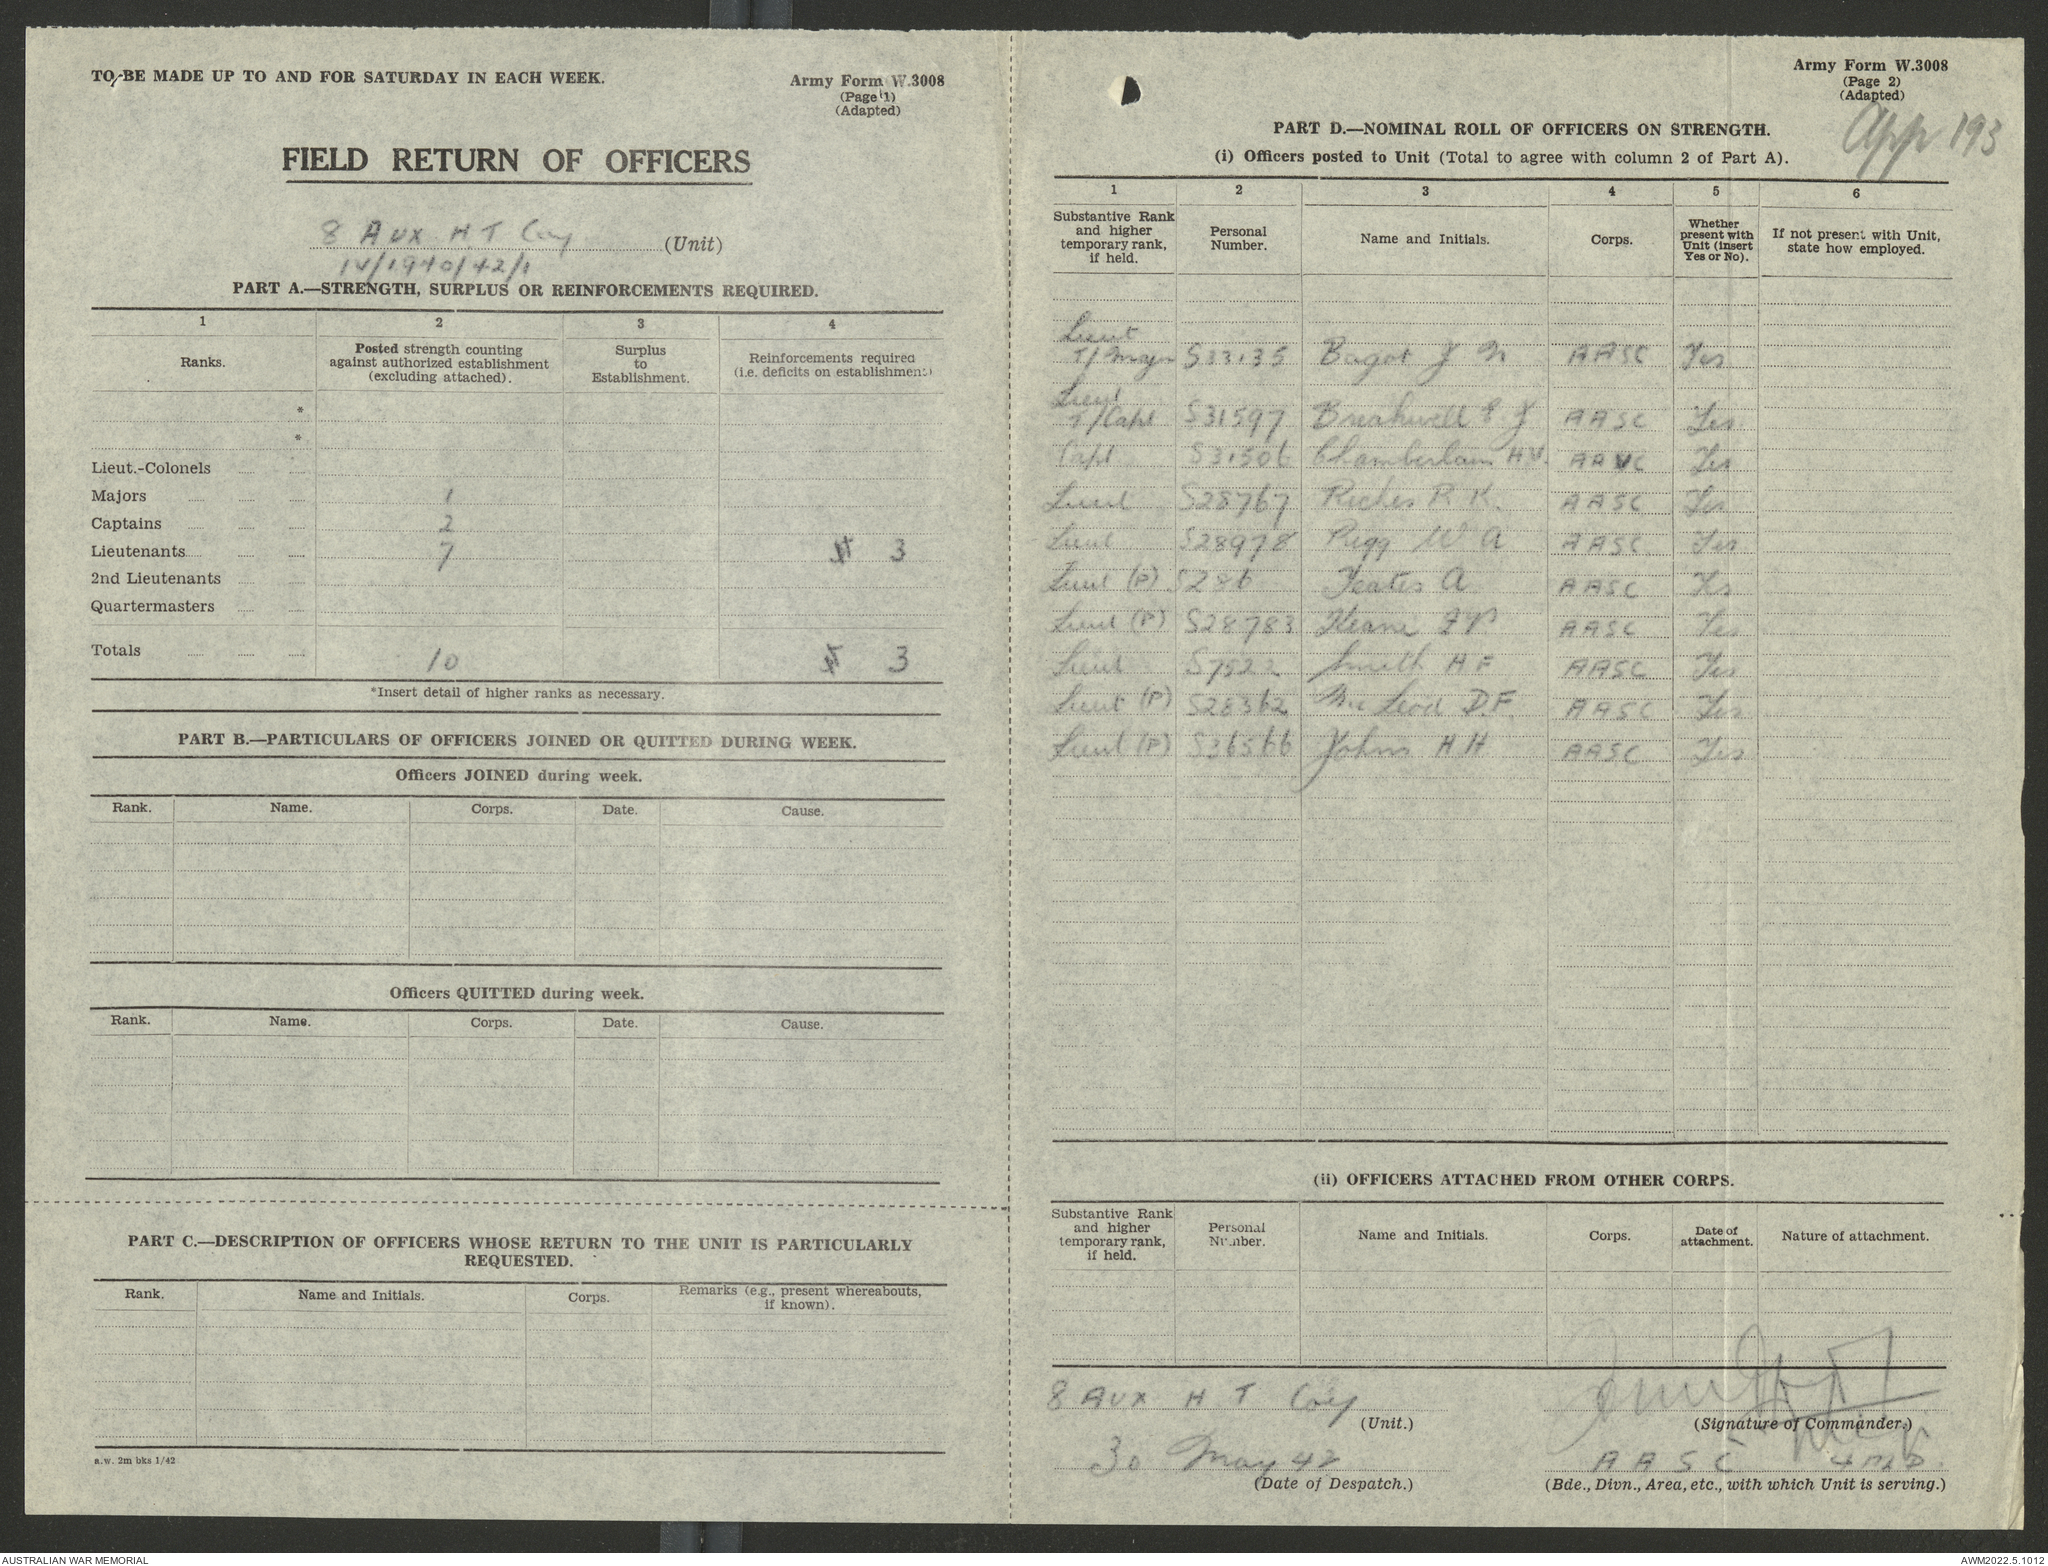 TO BE MADE UP TO AND FOR SATURDAY IN EACH WEEK.
Army Form W.3008
(Page 1)
(Adapted)
FIELD RETURN OF OFFICERS
8 Aux H T Coy (Unit)
IV/1940/42/1
PART A.—STRENGTH, SURPLUS OR REINFORCEMENTS REQUIRED.
1 2 3 4
Ranks. Posted strength counting against authorized establishment (excluding attached). Surplus to Establishment. Reinforcements required (i.e. deficits on establishment)
*
*
Lieut.-Colonels
Majors 1
Captains 2
Lieutenants 7 3
2nd Lieutenants
Quartermasters
Totals 10 3
*Insert detail of higher ranks as necessary.
PART B.—PARTICULARS OF OFFICERS JOINED OR QUITTED DURING WEEK.
Officers JOINED during week.
Rank. Name. Corps. Date. Cause.
Officers QUITTED during week.
Rank. Name. Corps. Date. Cause.
PART C.—DESCRIPTION OF OFFICERS WHOSE RETURN TO THE UNIT IS PARTICULARLY
REQUESTED.
Rank. Name and Initials. Corps. Remarks (e.g., present whereabouts, if known).
a.w. 2m bks 1/42
Army Form W.3008
(Page 2)
(Adapted)
App 193
PART D.—NOMINAL ROLL OF OFFICERS ON STRENGTH.
(i) Officers posted to Unit (Total to agree with column 2 of Part A).
1 2 3 4 5 6
Substantive Rank and higher temporary rank, if held. Personal Number. Name and Initials. Corps. Whether present with Unit (insert Yes or No). If not present with Unit, state how employed.
Lieut
T/Major S33135 Bagot J N AASC Yes
Lieut
T/Capt S31597 Breakwell E J AASC Yes
Capt S31506 Chamberlain H.V. AAVC Yes
Lieut S28767 Riches R K. AASC Yes
Lieut S28978 Pegg W A AASC Yes
Lieut (P) S286 Yeates A AASC Yes
Lieut (P) S28783 Keane F P. AASC Yes
Lieut S7522 Smith H F AASC Yes
Lieut (P) S28362 McLeod D.F. AASC Yes
Lieut (P) S36566 Johns H H AASC Yes
(ii) OFFICERS ATTACHED FROM OTHER CORPS.
Substantive Rank and higher temporary rank, if held. Personal Number. Name and Initials. Corps. Date of attachment. Nature of attachment.
8 Aux H T Coy
(Unit.) (Signature of Commander.)
30 May 42 AASC 4 M.D.
(Date of Despatch.) (Bde., Divn., Area, etc., with which Unit is serving.)
AUSTRALIAN WAR MEMORIAL AWM2022.5.1012